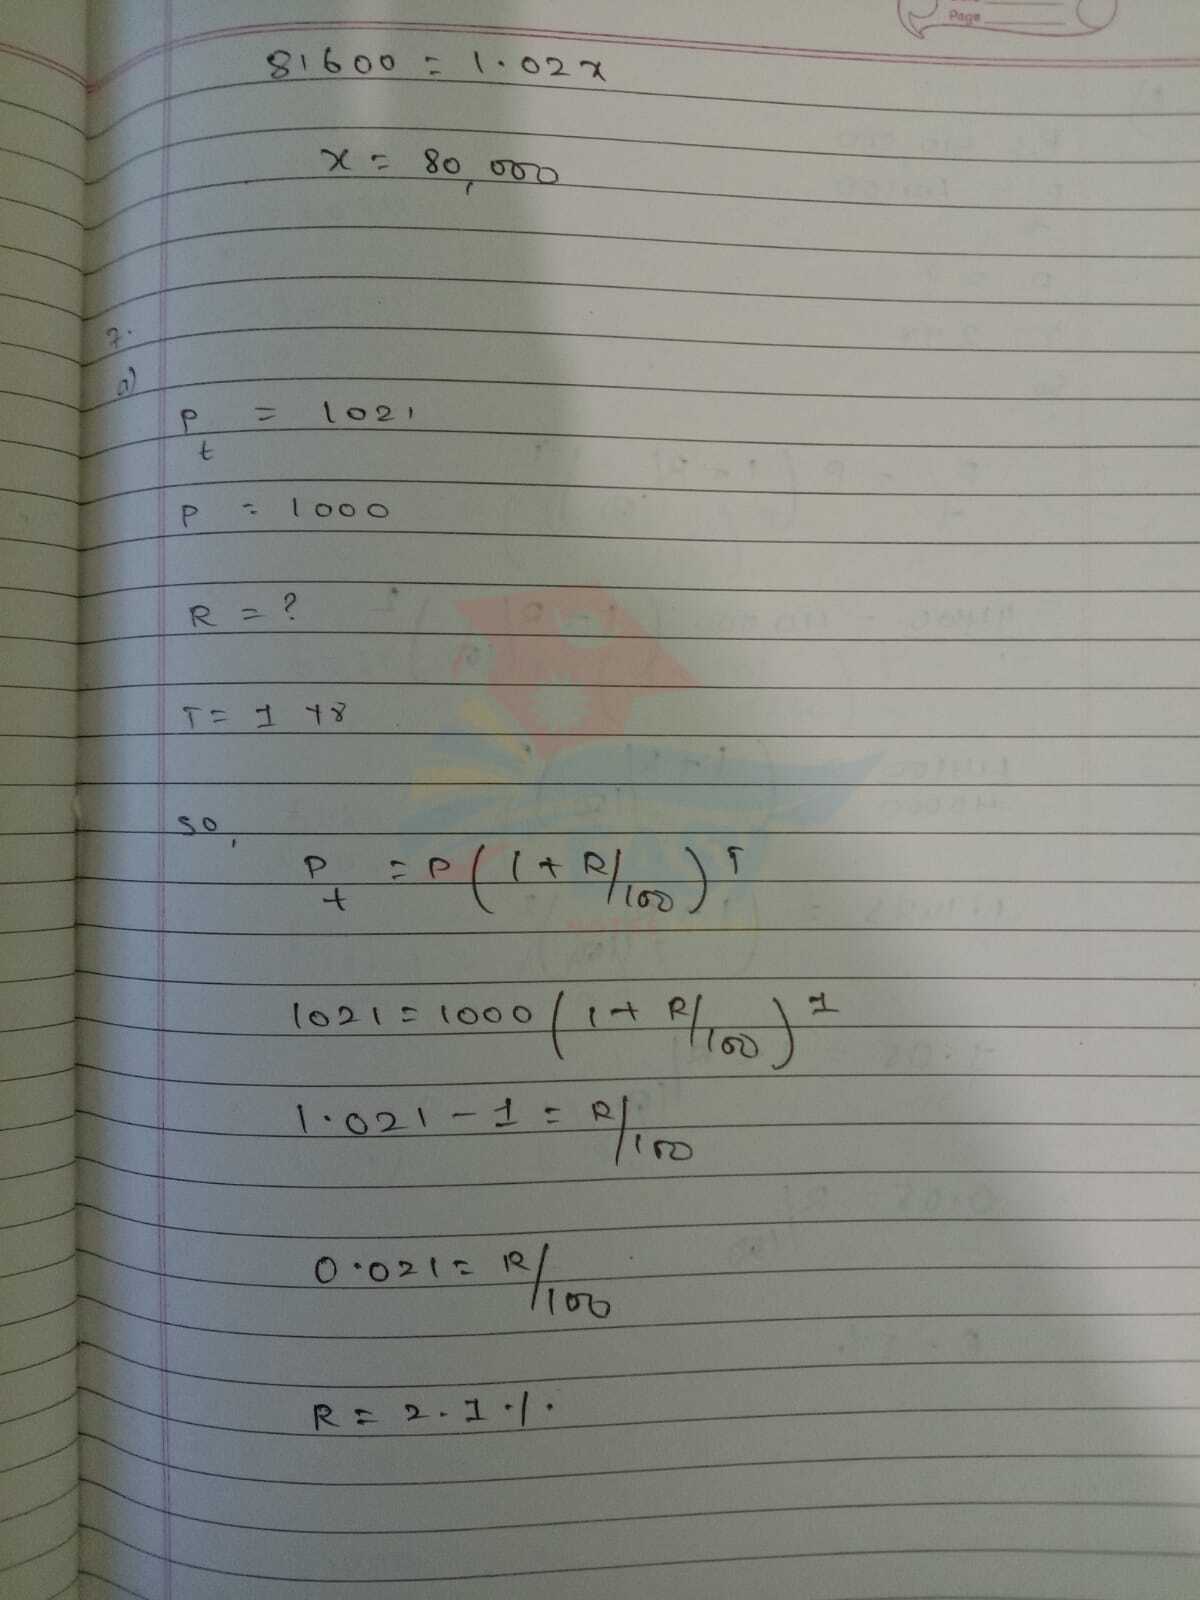 Page
81600 = 1.02x
x = 80,000
7.
a)
Pt = 1021
P = 1000
R = ?
T = 1 yr
so,
Pt = P(1 + R/100)^T
1021 = 1000(1 + R/100)^1
1.021 - 1 = R/100
0.021 = R/100
R = 2.1%